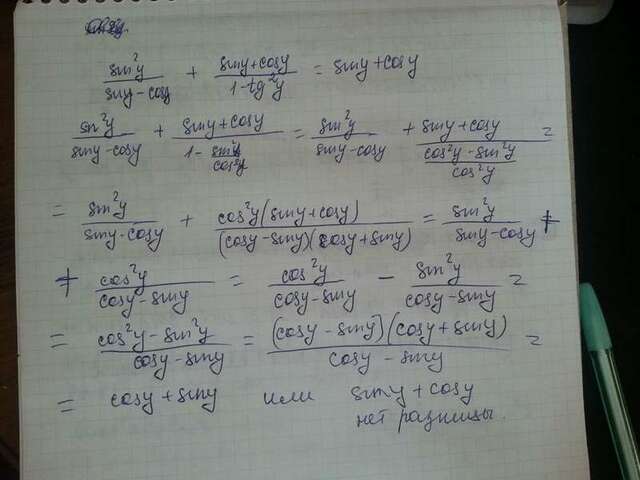 sin²y/(siny - cosy) + (siny + cosy)/(1 - tg²y) = siny + cosy
sin²y/(siny - cosy) + (siny + cosy)/(1 - sin²y/cos²y) = sin²y/(siny - cosy) + (siny + cosy)/((cos²y - sin²y)/cos²y) =
= sin²y/(siny - cosy) + cos²y(siny + cosy)/((cosy - siny)(cosy + siny)) = sin²y/(siny - cosy) +
+ cos²y/(cosy - siny) = cos²y/(cosy - siny) - sin²y/(cosy - siny) =
= (cos²y - sin²y)/(cosy - siny) = (cosy - siny)(cosy + siny)/(cosy - siny) =
= cosy + siny или siny + cosy
нет разницы.